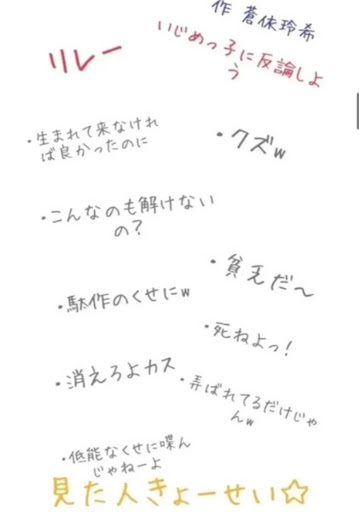 作 蒼休玲希
リレー
いじめっ子に反論しよ
う
・生まれて来なけれ
ば良かったのに
・クズw
・こんなのも解けない
の?
・貧乏だ〜
・駄作のくせにw
・死ねよっ!
・消えろよカス
・弄ばれてるだけじゃ
んw
・低能なくせに喋ん
じゃねーよ
見た人きょーせい☆